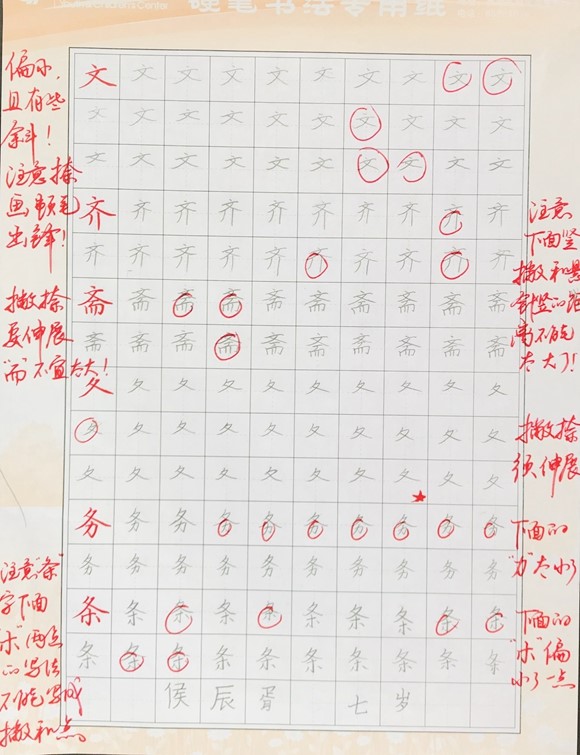 Center
硬笔书法专用纸
文文文文文文文文文文
文文文文文文文文文文
文文文文文文文文文文
齐齐齐齐齐齐齐齐齐齐
齐齐齐齐齐齐齐齐齐齐
斋斋斋斋斋斋斋斋斋斋
斋斋斋斋斋斋斋斋斋斋
夂夂夂夂夂夂夂夂夂夂
夂夂夂夂夂夂夂夂夂夂
夂夂夂夂夂夂夂夂夂夂
务务务务务务务务务务
务务务务务务务务务务
条条条条条条条条条条
条条条条条条条条条条
侯辰胥 七岁
偏小,
且有些
斜!
注意捺
画顿笔
出锋!
撇捺
要伸展
"而"不宜太大!
注意"条"
字下面
"朩"两点
的写法
不能写成
撇和点。
注意
下面竖
撇和悬
针竖的距
离不能
太大了!
撇捺
须伸展
下面的
"力"太小了
下面的
"朩"偏
小了一点